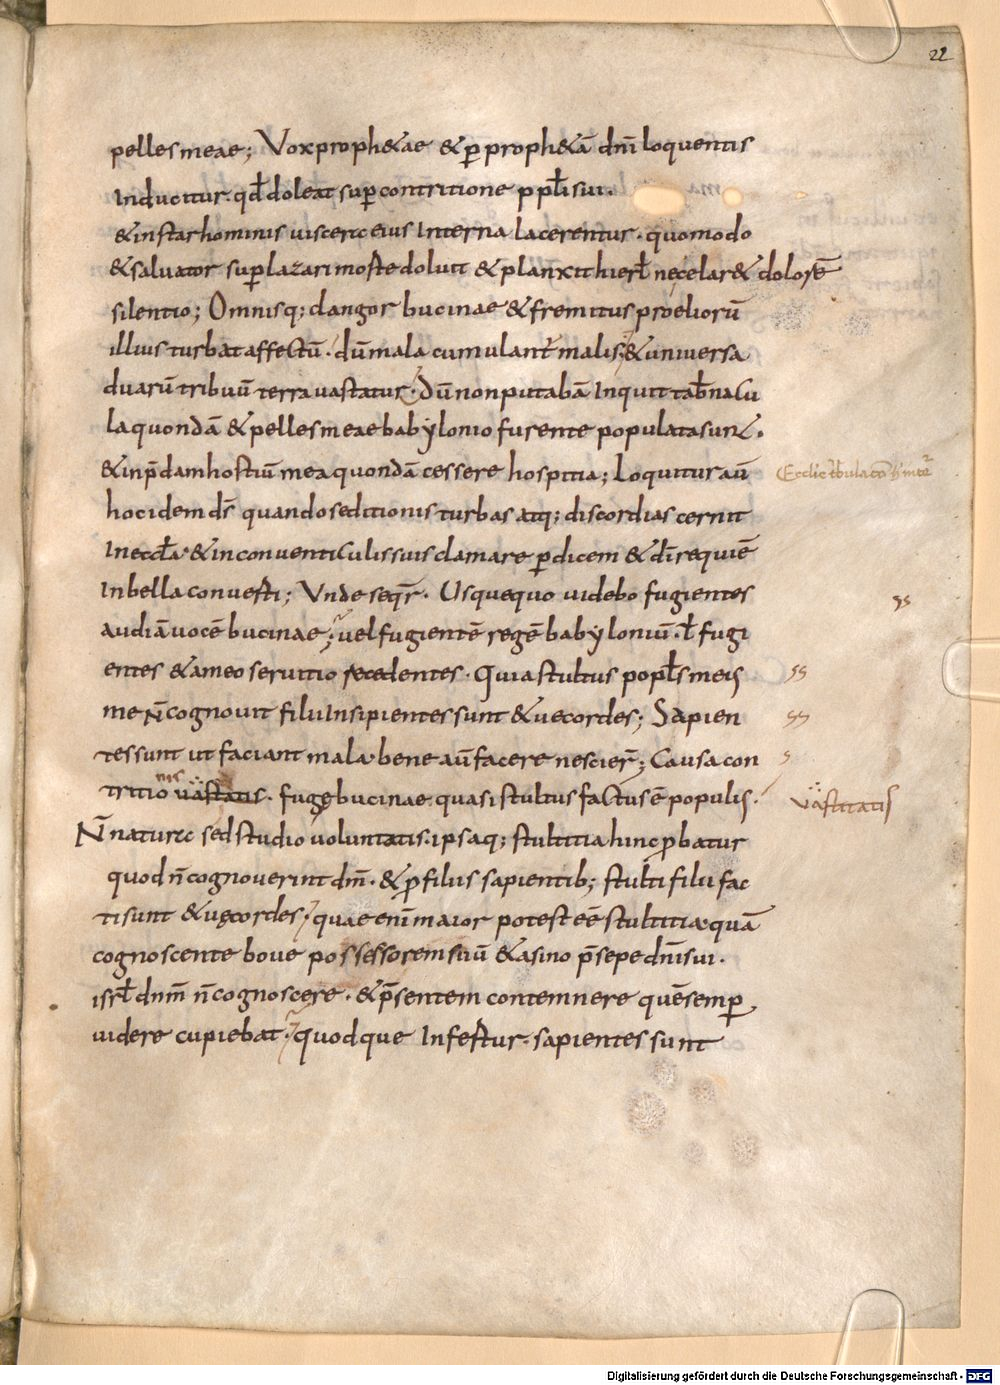 22
pelles meae; Vox proph&ae & ꝑ proph&ā dn̄i loquentis
Inducitur. qd̄ doleat suꝑ contritione ppl̄i sui.
& instar hominis viscera eius Interna lacerentur. quomodo
& salvator suꝑ lazari moste doluit & planxit hierl̄ nec celar& dolorē
silentio; Omnisq; clangor bucinae & fremitus proeliorū
illius turbat affectū. dū mala cumulant̄ malis; & universa
duarū tribuū terra vastatur. Dū non putabā Inquit tab̄nacu
la quondā & pelles meae babẏlonio furente populata sunt.
& in p̄dam hostiū mea quondā cessere hospitia; Loquitur aū
Ecclīe
hoc idem ds̄ quando seditionis turbas atq; discordias cernit
In eccl̄a. & in conventiculis suis clamare ꝑdicem & dī requiē
In bella converti; Vnde seqr̄. Usquequo videbo fugientes
ss
audiā vocē bucinae; vel fugientē regē babẏloniū. l̄ fugi
entes & a meo servitio recedentes. Quia stultus popl̄s meis
ss
me n̄ cognovit filii Insipientes sunt & vecordes; Sapien
ss
tes sunt ut faciant mala. bene aū facere nescier̄; Causa con
s
tritionis vastatis. fuge bucinae quasi stultus factus ē populis.
vastitatis
N̄ naturae sed studio voluntatis. ipsaq; stultitia hinc ꝓbatur
quod n̄ cognoverint dm̄. & p̄ filiis sapientib; stulti filii fac
ti sunt & vęcordes; quae enī maior potest eē stultitia. quā
cognoscente bove possessorem suū & asino p̄sepe dn̄i sui.
isrl̄ dnm̄ n̄ cognoscere. & p̄sentem contemnere quē semꝑ
videre cupiebat. quodque Infestur. sapientes sunt
Digitalisierung gefördert durch die Deutsche Forschungsgemeinschaft - DFG